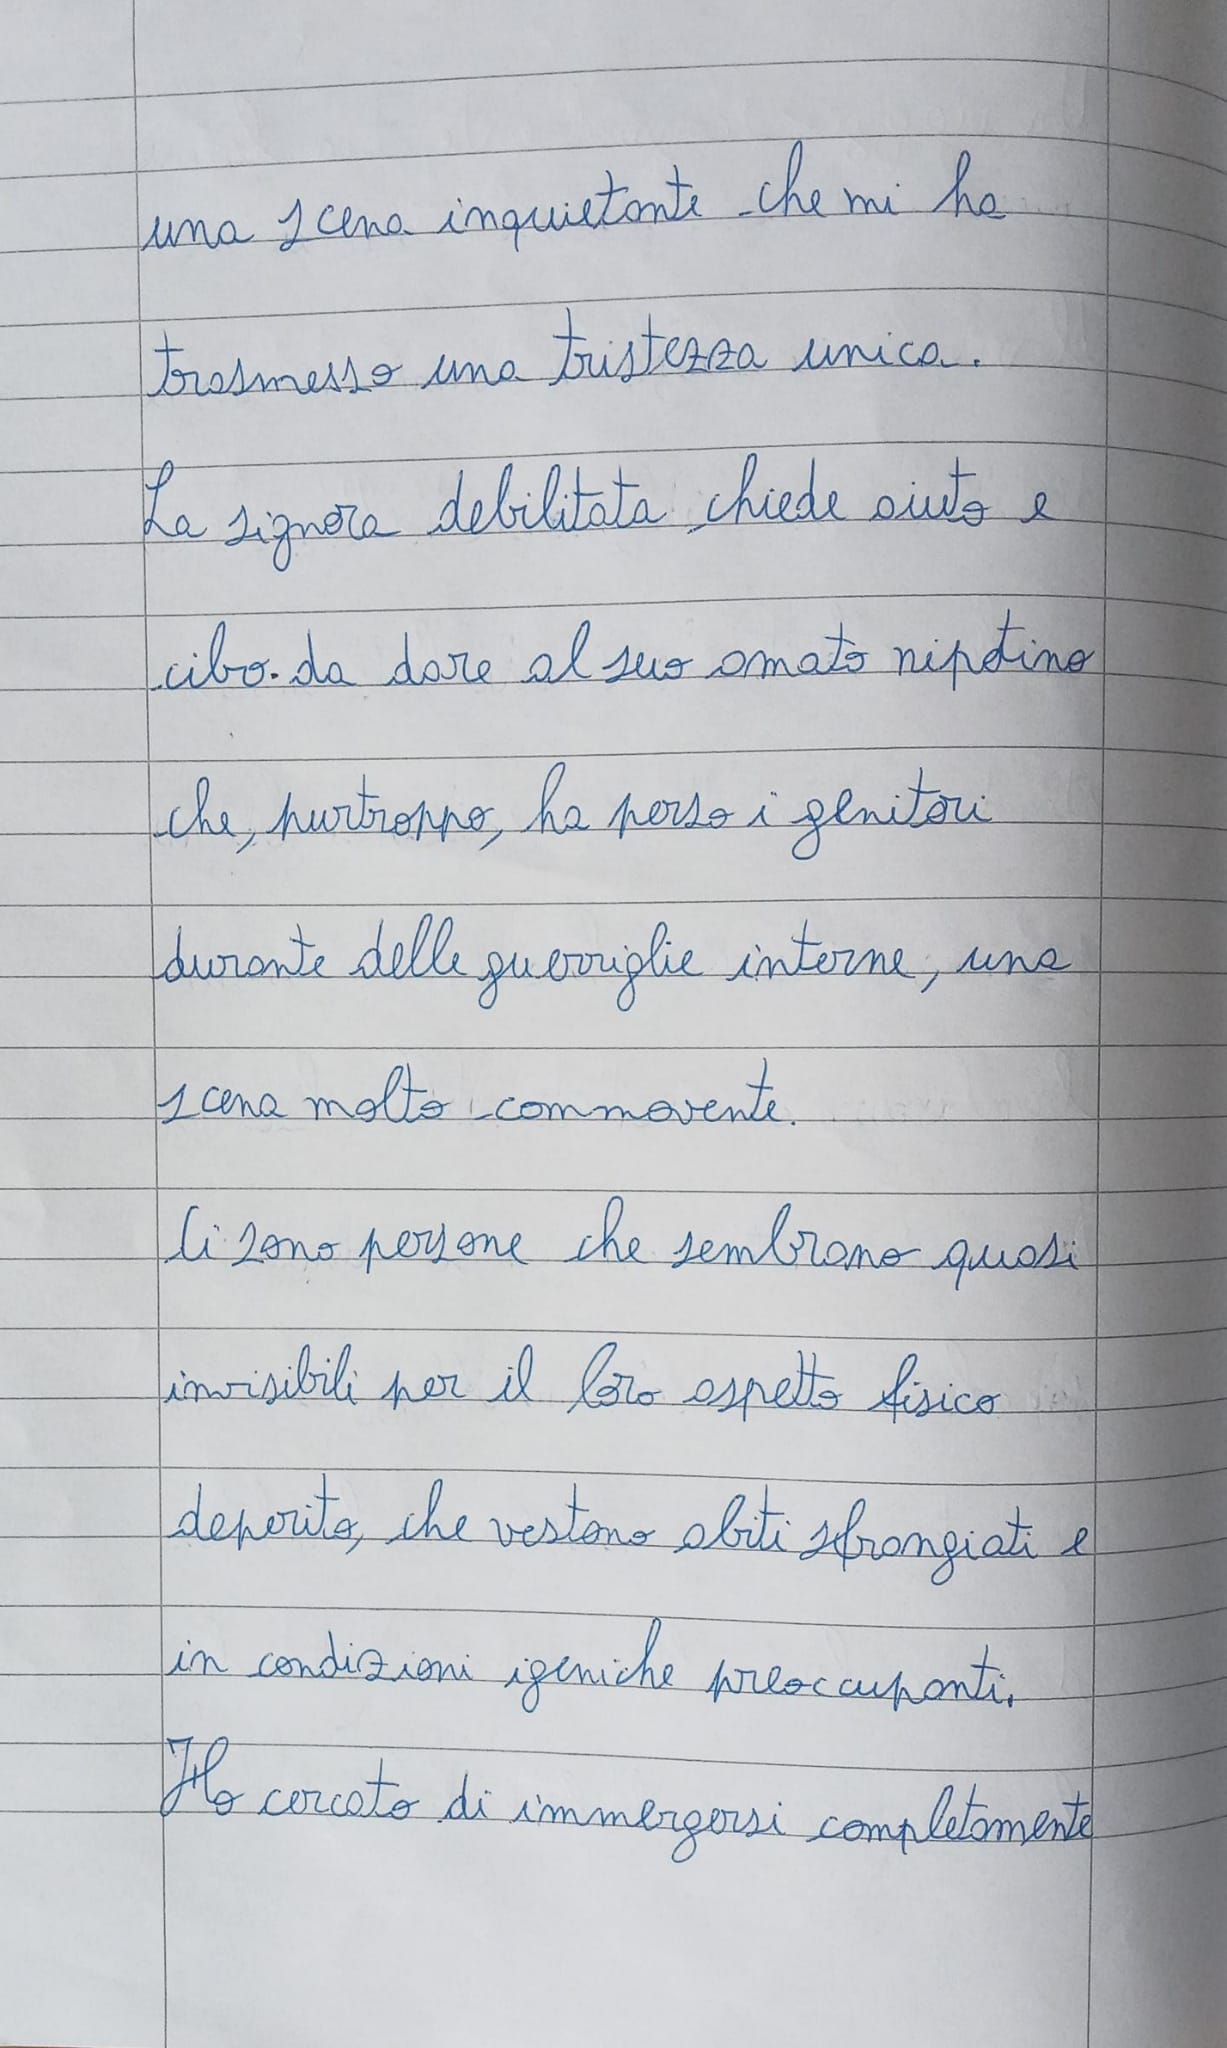 una scena inquietante che mi ha
trasmesso una tristezza unica.
La signora debilitata chiede aiuto e
cibo da dare al suo amato nipotino
che, purtroppo, ha perso i genitori
durante delle guerriglie interne, una
scena molto commovente.
Ci sono persone che sembrano quasi
invisibili per il loro aspetto fisico
deperito, che vestono abiti sfrangiati e
in condizioni igeniche preoccupanti.
Ho cercato di immergersi completamente